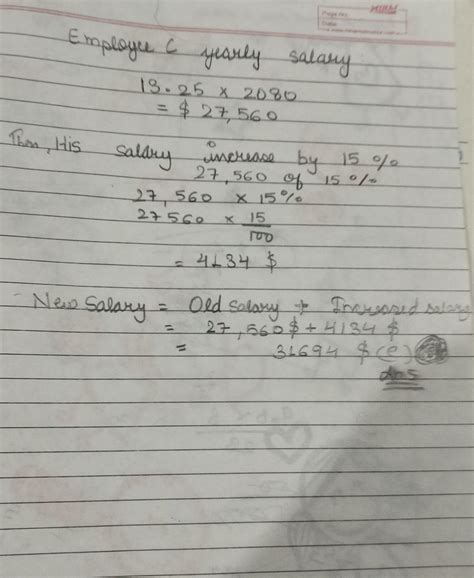 Page No.
Date:
Employee C yearly salary
13.25 x 2080
= $ 27,560
Then, His salary increase by 15%
27,560 of 15%
27,560 x 15%
27560 x 15
100
= 4134 $
New Salary = Old Salary + Increased salary
= 27,560$ + 4134 $
= 31694 $ (e)
Ans